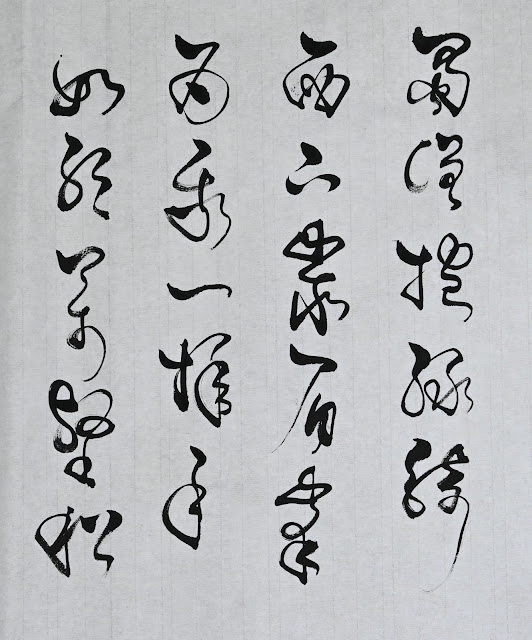 蜀僧抱綠綺
西下峩眉峯
為我一揮手
如聽萬壑松